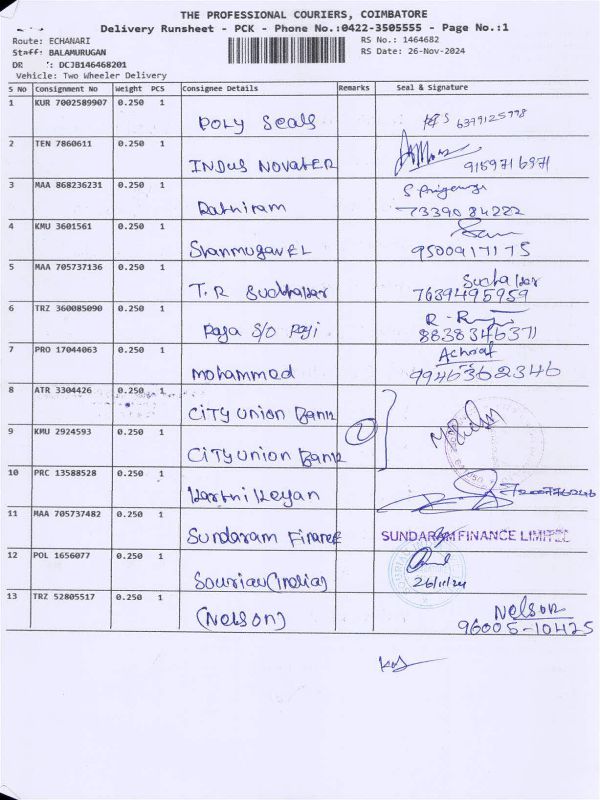 THE PROFESSIONAL COURIERS, COIMBATORE
Delivery Runsheet - PCK - Phone No.:0422-3505555 - Page No.:1
Route: ECHANARI RS No.: 1464682
Staff: BALAMURUGAN RS Date: 26-Nov-2024
DR : DCJB146468201
Vehicle: Two Wheeler Delivery
S No Consignment No Weight PCS Consignee Details Remarks Seal & Signature
1 KUR 7002589907 0.250 1 Poly Seals 6379125998
2 TEN 7860611 0.250 1 INDUS NOVATER 9159716971
3 MAA 868236231 0.250 1 Rathiram 7339084222
4 KMU 3601561 0.250 1 ShanmugavEL 9500917175
5 MAA 705737136 0.250 1 T.R Sudhakar Sudhakar
7639495959
6 TRZ 360085090 0.250 1 Raja S/O Raji 8838346371
7 PRO 17044063 0.250 1 mohammed 9946362346
8 ATR 3304426 0.250 1 CITY UNION Bank
9 KMU 2924593 0.250 1 CITY UNION Bank 2
10 PRC 13588528 0.250 1 Karthikeyan
11 MAA 705737482 0.250 1 Sundaram Finance SUNDARAM FINANCE LIMITED
12 POL 1656077 0.250 1 Souriau (India) 26/11/24
13 TRZ 52805517 0.250 1 (Nelson) Nelson
96005-10425